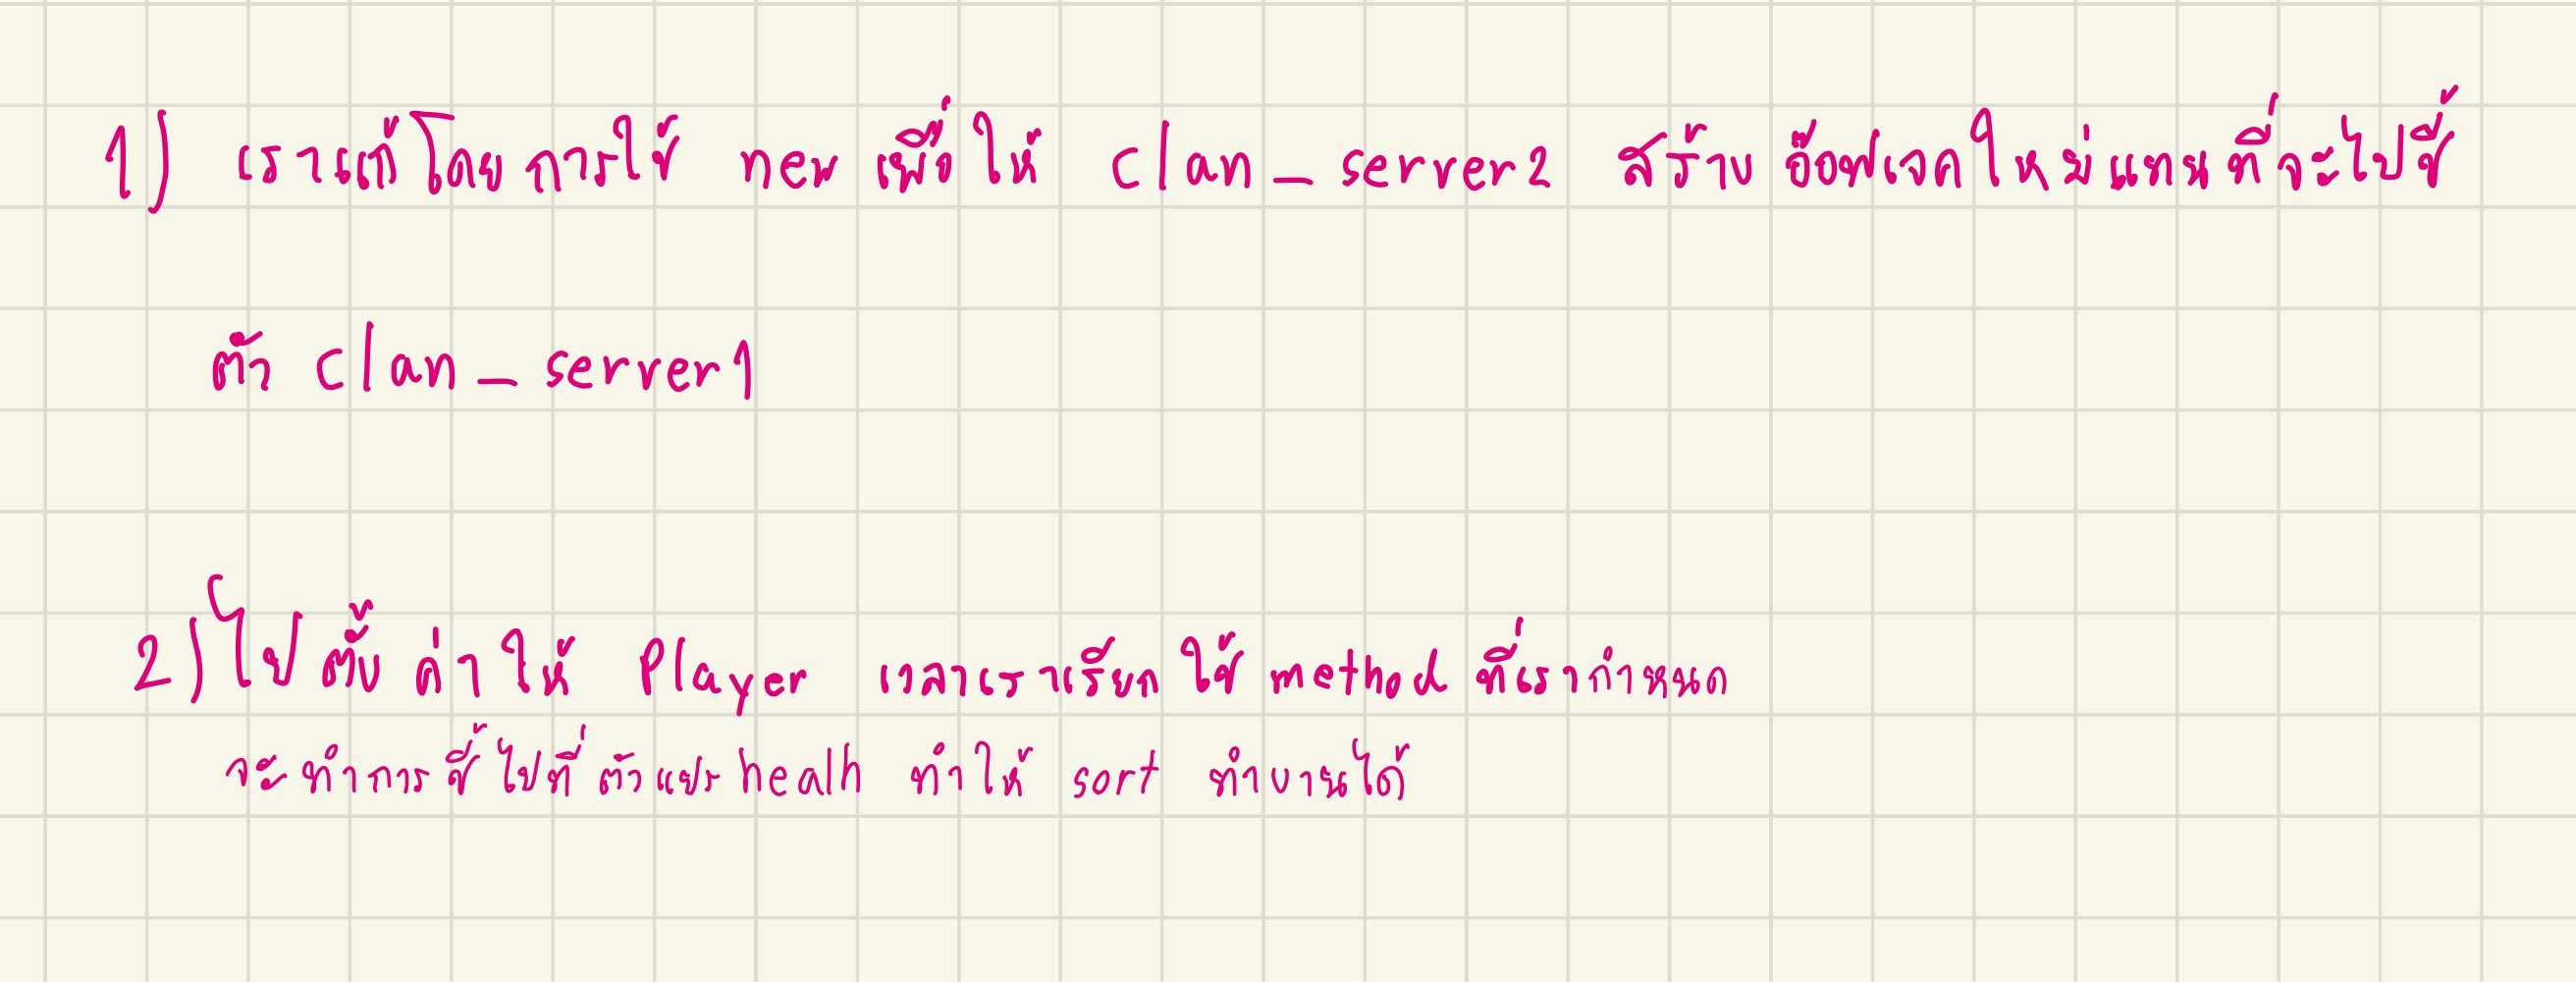 1) เราแก้โดยการใช้ new เพื่อให้ clan_server2 สร้างอ็อฟเจคใหม่แทนที่จะไปชี้
ตัว clan_server1
2) ไปตั้งค่าให้ Player เวลาเราเรียกใช้ method ที่เรากำหนด
จะทำการชี้ไปที่ตัวแปร health ทำให้ sort ทำงานได้